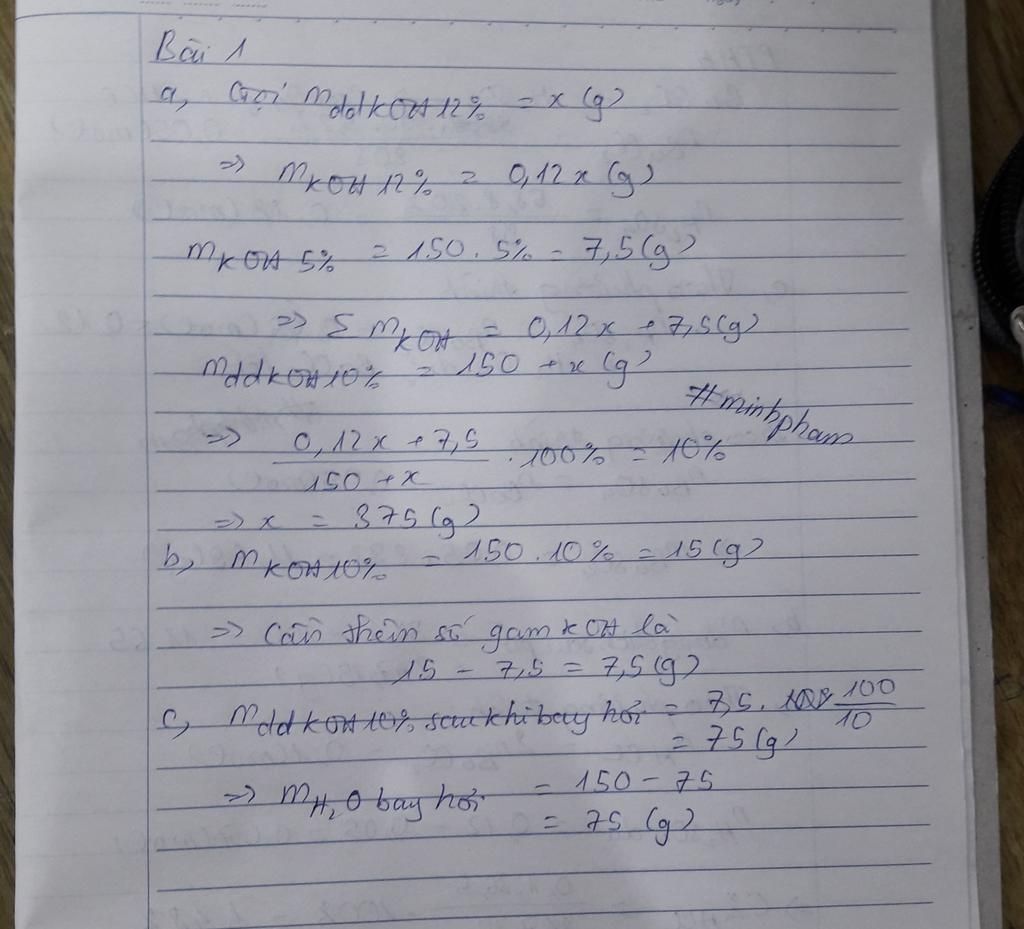 Bài 1
a, Gọi mddKOH12% = x (g)
=> mKOH 12% = 0,12x (g)
mKOH 5% = 150 . 5% = 7,5 (g)
=> Σ mKOH = 0,12x + 7,5 (g)
mddKOH10% = 150 + x (g)
#minhpham
=> 0,12x + 7,5 / 150 + x . 100% = 10%
=> x = 375 (g)
b, mKOH10% = 150 . 10% = 15 (g)
=> Cần thêm số gam KOH là
15 - 7,5 = 7,5 (g)
c, mddKOH10% sau khi bay hơi = 7,5 . 100/10
= 75 (g)
=> mH2O bay hơi = 150 - 75
= 75 (g)